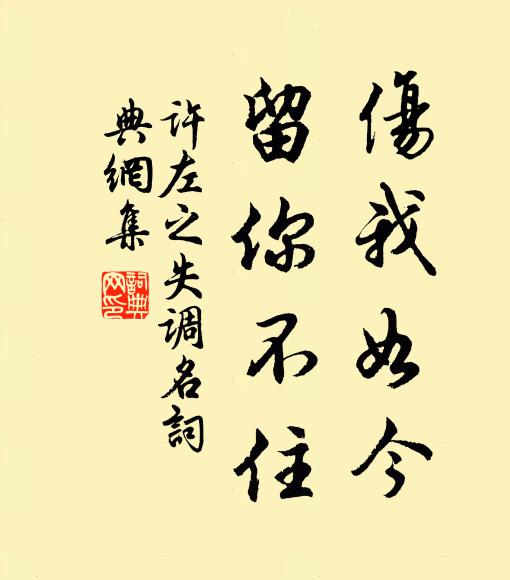 傷我如今
留你不住
許左之失調名詞
典網集
詞典網印